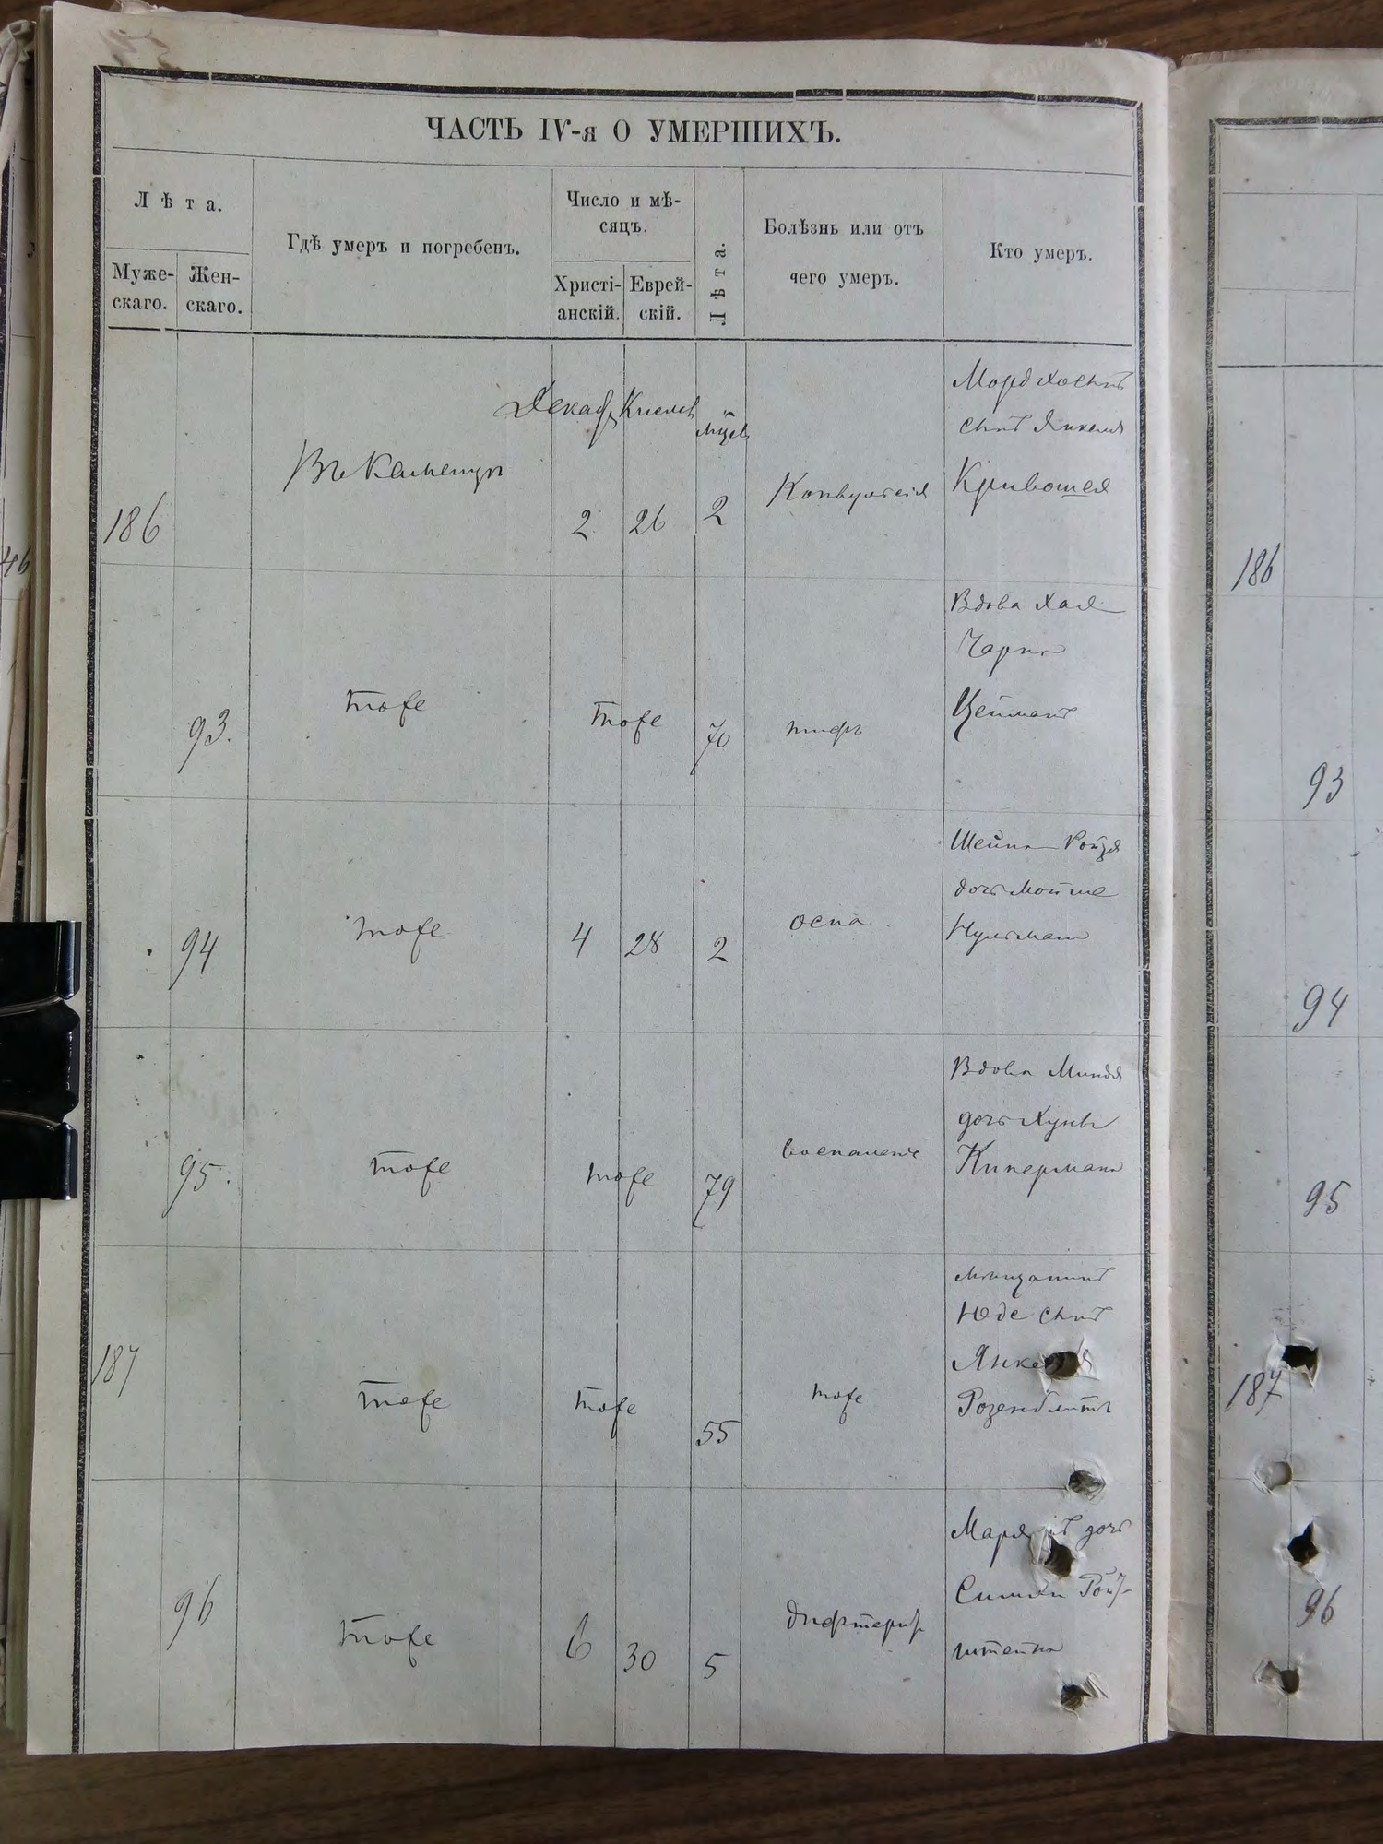 ЧАСТЬ IV-я О УМЕРШИХЪ.
Лѣта.
Муже-
скаго.
Жен-
скаго.
Гдѣ умеръ и погребенъ.
Число и мѣ-
сяцъ.
Христі-
анскій.
Еврей-
скій.
Лѣта.
Болѣзнь или отъ
чего умеръ.
Кто умеръ.
186
Въ Каменцѣ
2
26
2
Конвульсія
сынъ Янкеля
Кривошея
93.
тоже
тоже
70
тифъ
Вдова Хая
Чарна
Цейманъ
94
тоже
4
28
2
оспа
Шейна Ройзя
дочь Мойше
95.
тоже
тоже
79
воспаленіе
Вдова Миндя
дочь
Киперманъ
187
тоже
тоже
55
тоже
Юде сынъ
Розенблитъ
96
тоже
6
30
5
дифтеритъ
дочь
Симхи Рой
штейна
186
93
94
95
187
96
46